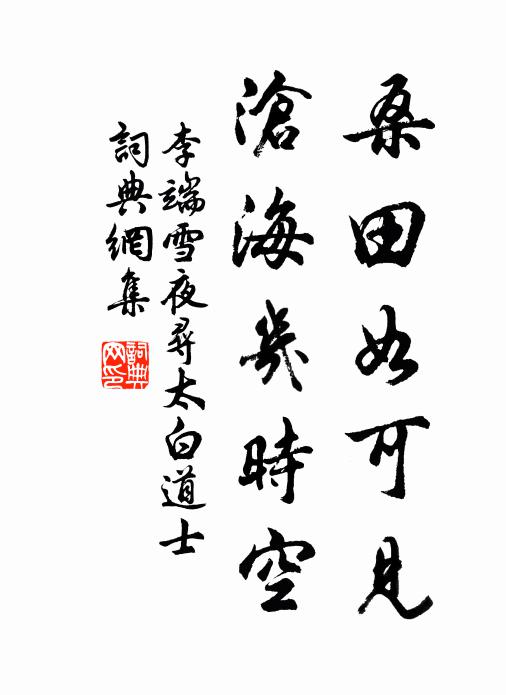 桑田如可見
滄海幾時空
李端雪夜尋太白道士
詞典網集
詞典網印